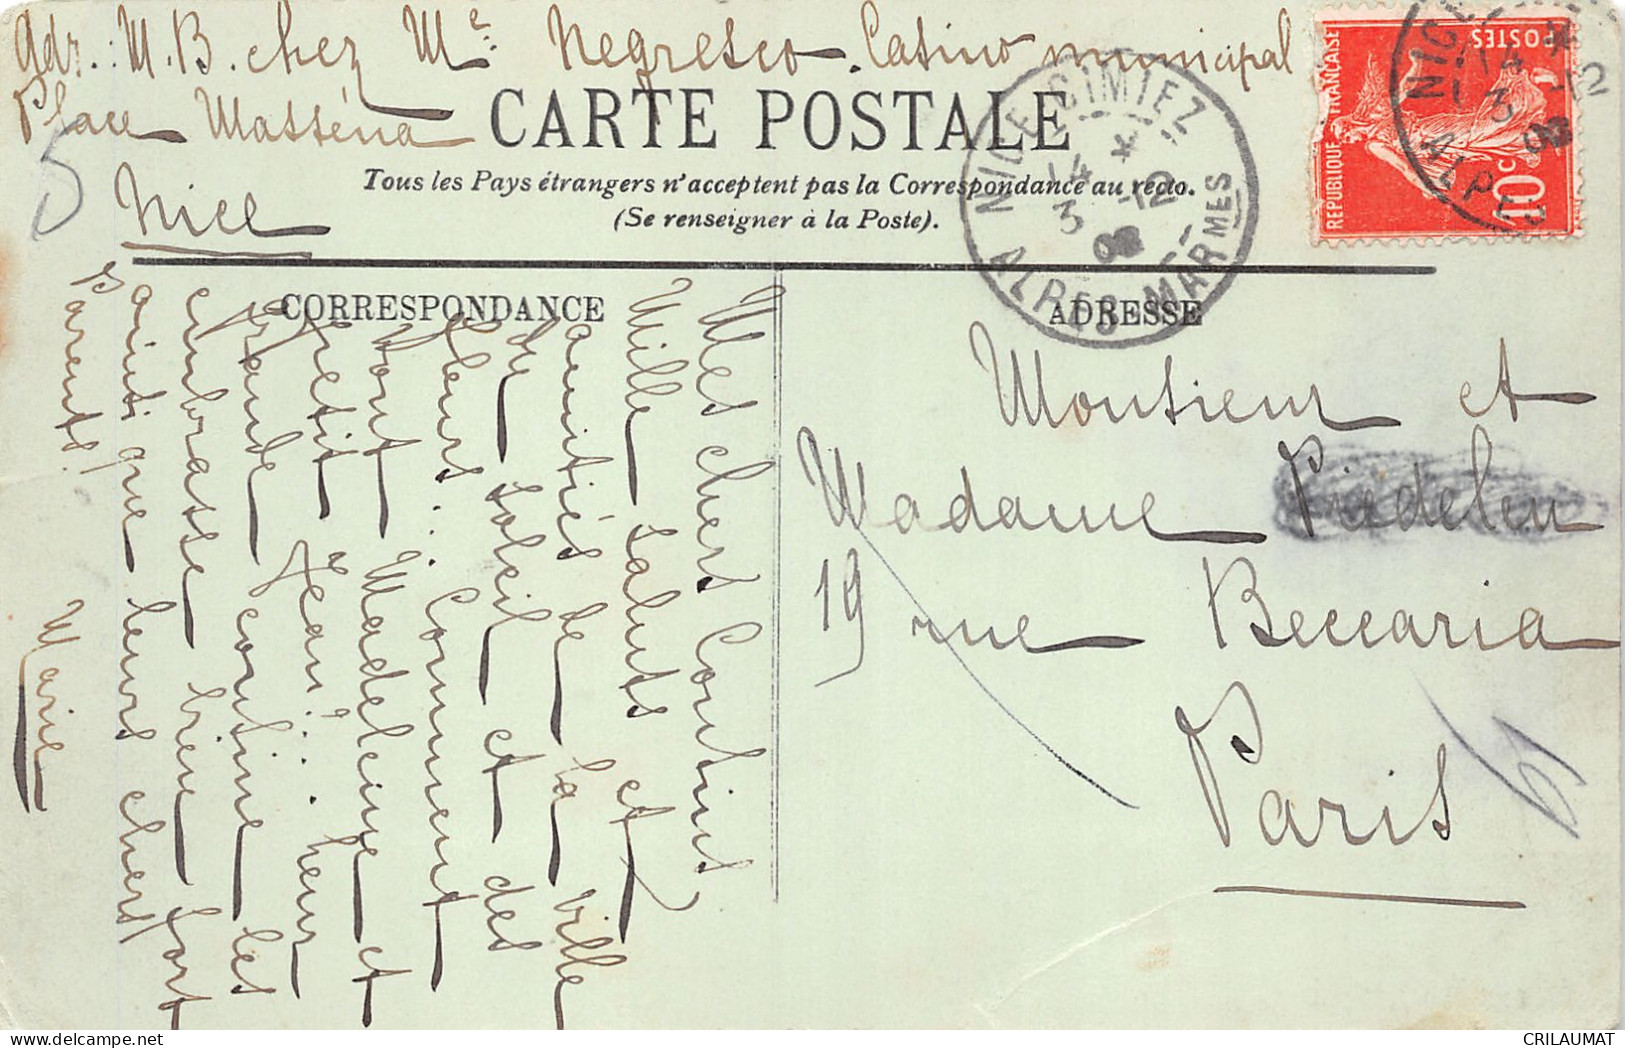 Adr.: M. B. chez Mr. Negresco. Casino municipal
Place Masséna
Nice
CARTE POSTALE
Tous les Pays étrangers n'acceptent pas la Correspondance au recto.
(Se renseigner à la Poste).
NICE CIMIEZ
14 *
3 -12
08
ALPES-MARMES
REPUBLIQUE FRANÇAISE
POSTES
10c
NICE
14 *
3 -12
ALPES
5
CORRESPONDANCE
Mes chers Cousins,
Mille saluts et
amitiés de la ville
du soleil et des
fleurs... Comment
vont Madeleine et
petit Jean?... Leur
grande cousine les
embrasse bien fort
ainsi que leurs chers
Parents!
Marie
ADRESSE
Monsieur et
Madame Piedeleu
19 rue Beccaria
Paris
CRILAUMAT